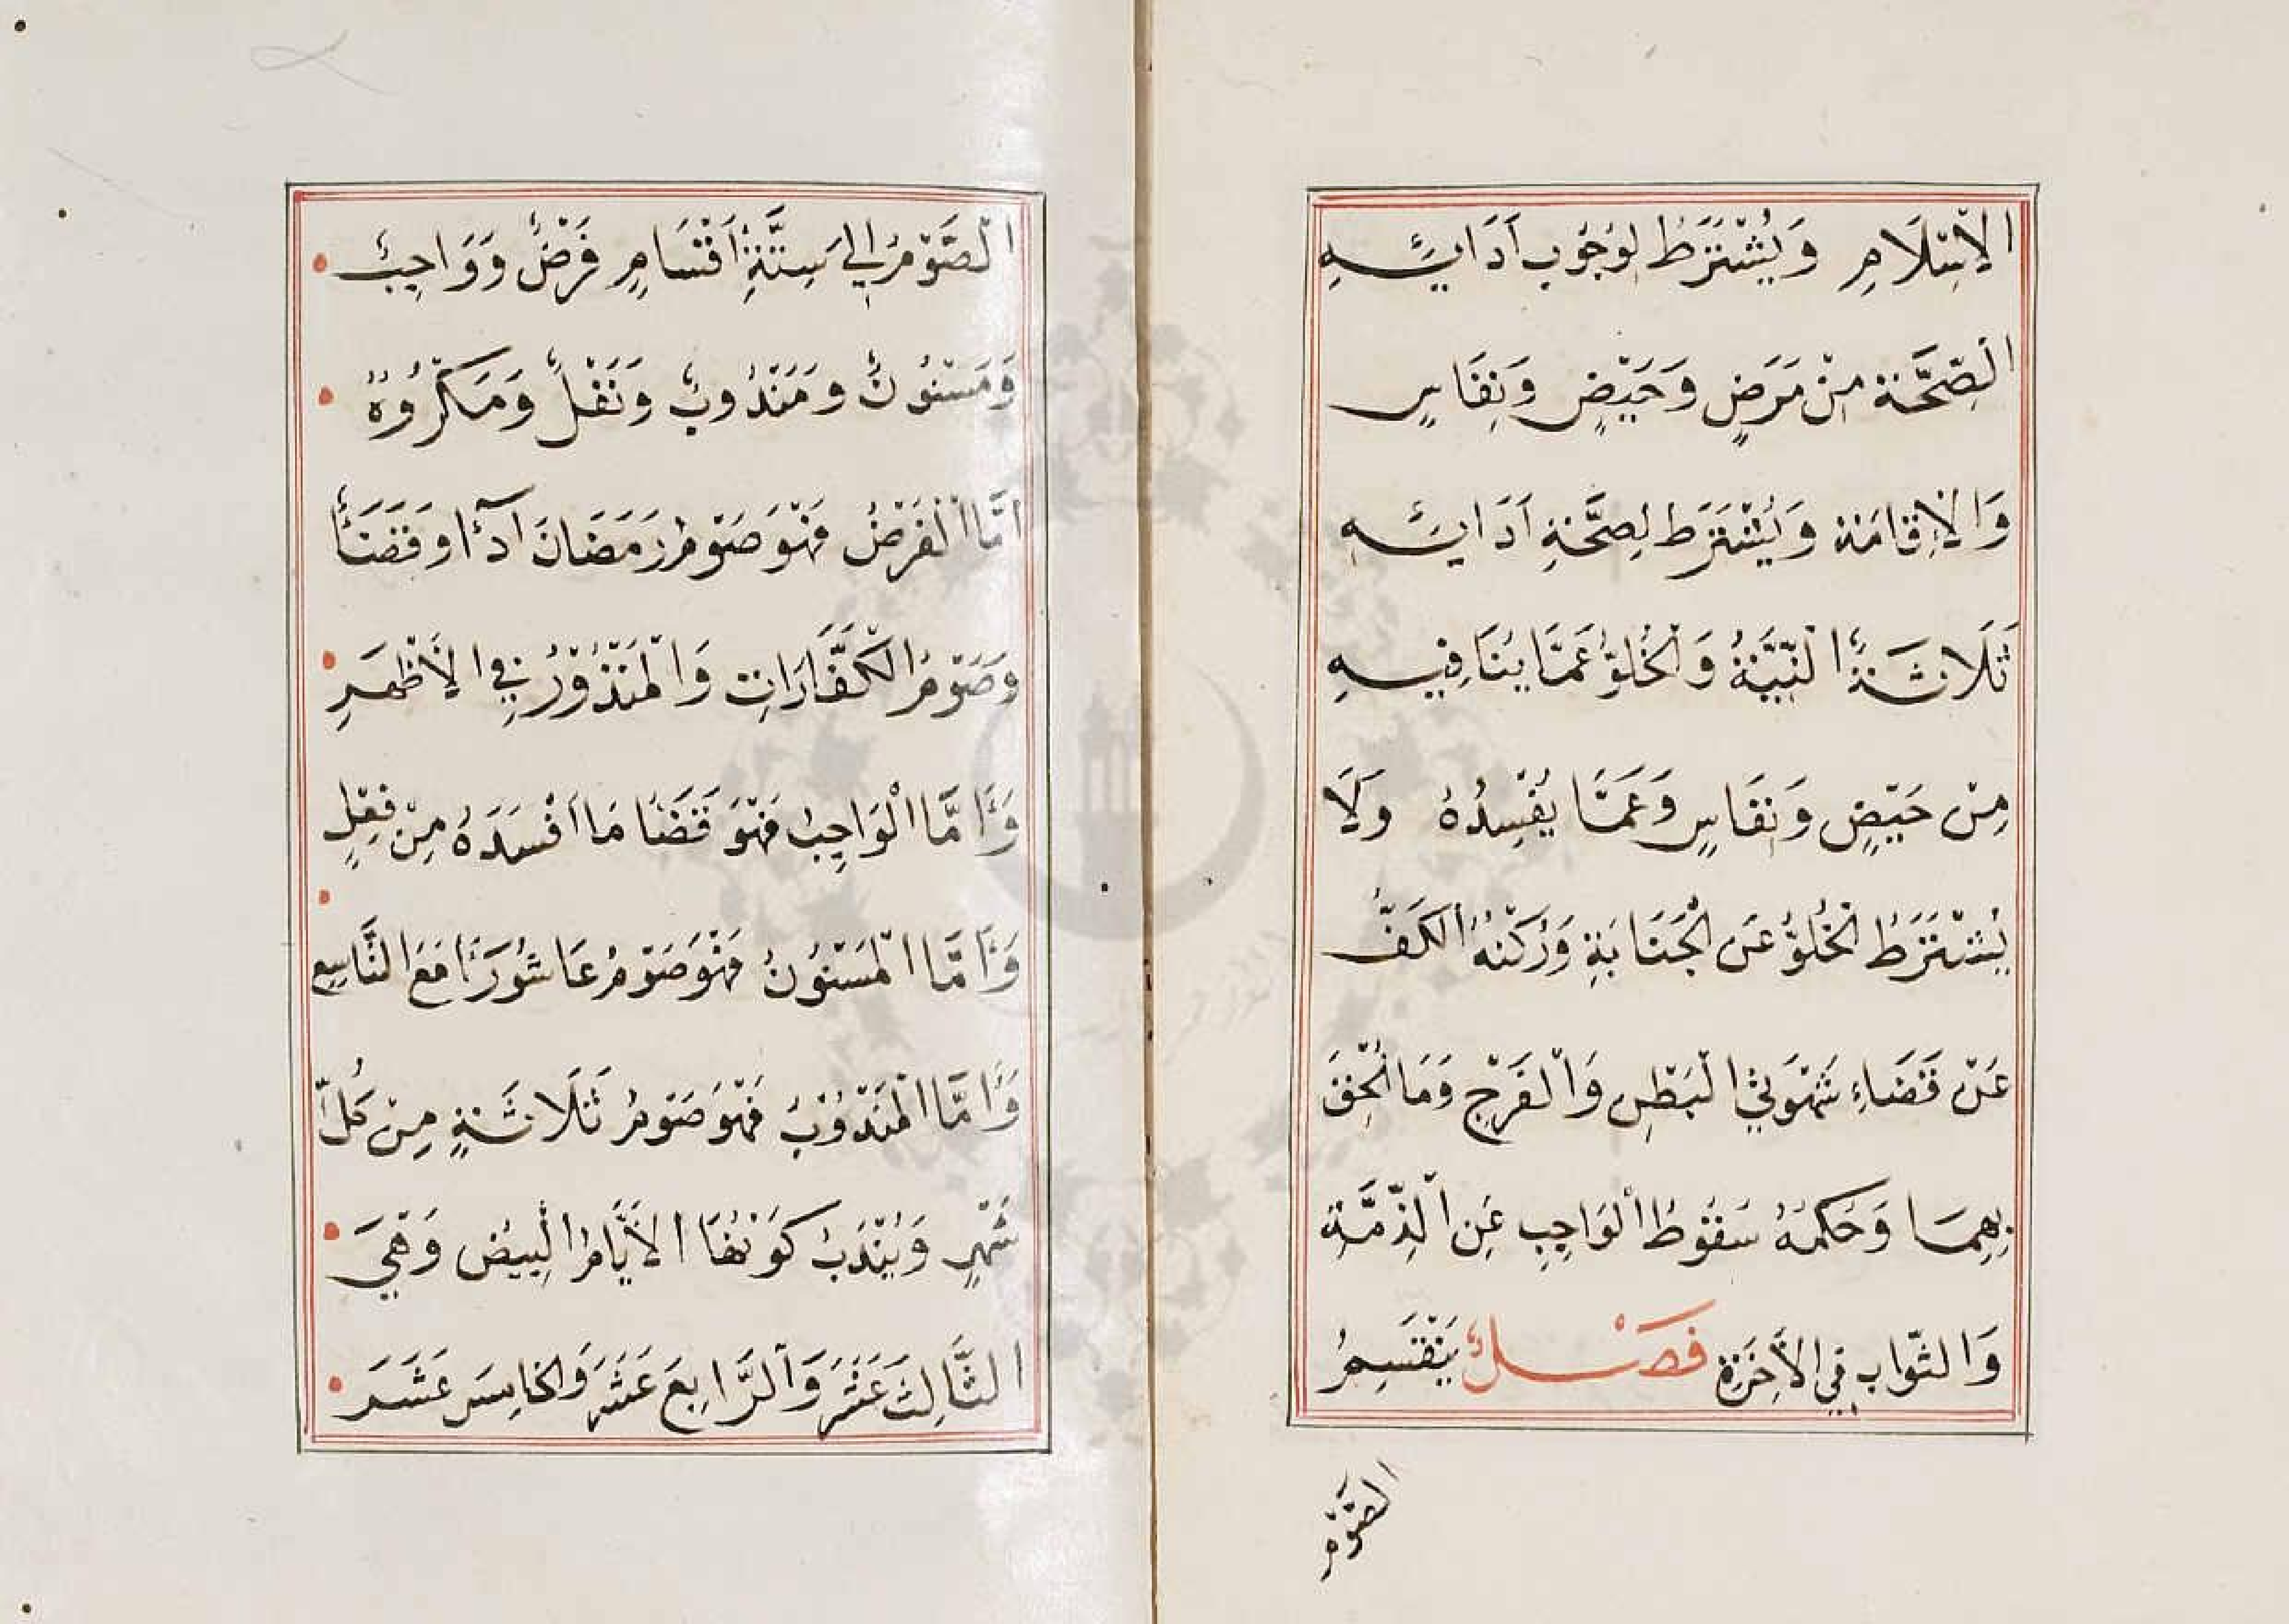 الْاِسْلَامِ وَيُشْتَرَطُ لِوُجُوبِ اَدَائِهِ
الْصِّحَّة مِنْ مَرَضٍ وَحَيْضٍ وَنِفَاسٍ
وَالْاِقَامَة وَيُشْتَرَط لِصِحَّةِ اَدَائِهِ
ثَلَاثَةٌ الْنِّيَّةُ وَالْخُلُوُّ عَمَّا يُنَافِيهِ
مِنْ حَيْضٍ وَنِفَاسٍ وَعَمَّا يُفْسِدُهُ وَلَا
يُشْتَرَطُ الْخُلُوُّ عَن الْجَنَابَةِ وَرُكْنُهُ الْكَفُّ
عَنْ قَضَاءِ شَهْوَتَيْ الْبَطْنِ وَالْفَرْجِ وَمَا اُلْحِقَ
بِهِمَا وَحُكْمُهُ سُقُوطُ الْوَاجِبِ عَنِ الْذِّمَّةِ
وَالثَّوَاب فِي الْاَخِرَةِ فَصْلٌ يَنْقَسِمُ
الصَّوْم
الْصَّوْمُ اِلَى سِتَّةِ اَقْسَامٍ فَرْضٌ وَوَاجِبٌ
وَمَسْنُونٌ وَمَنْدُوبٌ وَنَفْلٌ وَمَكْرُوهٌ
اَمَّا الْفَرْضُ فَهُوَ صَوْمُ رَمَضَانَ اَدآءً اوَقَضَأً
وَصَوْمُ الْكَفَّارَاتِ وَالْمَنْذُوْرُ فِي الْاَظْهَرِ
وَاَمَّا الْوَاجِبُ فَهْوَ قَضَا مَا اَفْسَدَهُ مِنْ نَفْلٍ
وَاَمَّا الْمَسْنُوْنُ فَهْوَ صَوْمُ عَاشُورَا مَعَ التَّاسِعِ
وَاَمَّا الْمَنْدُوْبُ فَهْوَ صَوْمُ ثَلَاثَةٍ مِنْ كُلِّ
شَهْرٍ وَيُنْدَبُ كَوْنُهَا الْاَيَّامُ الْبِيضُ وَهِيَ
الثَّالِثَ عَشَرَ وَالْرَّابِعَ عَشَرَ وَالخَامِسَ عَشَرَ